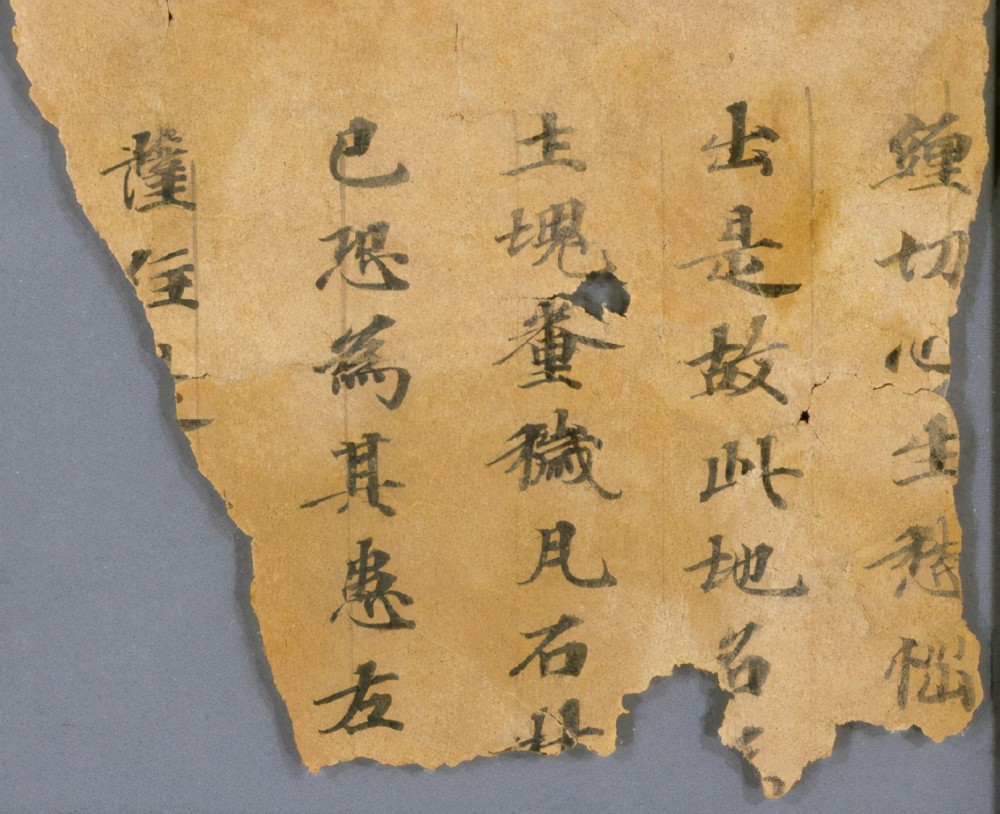 切心生愁惱
出是故此地名
土塊糞穢瓦石
已恐為其患左
住